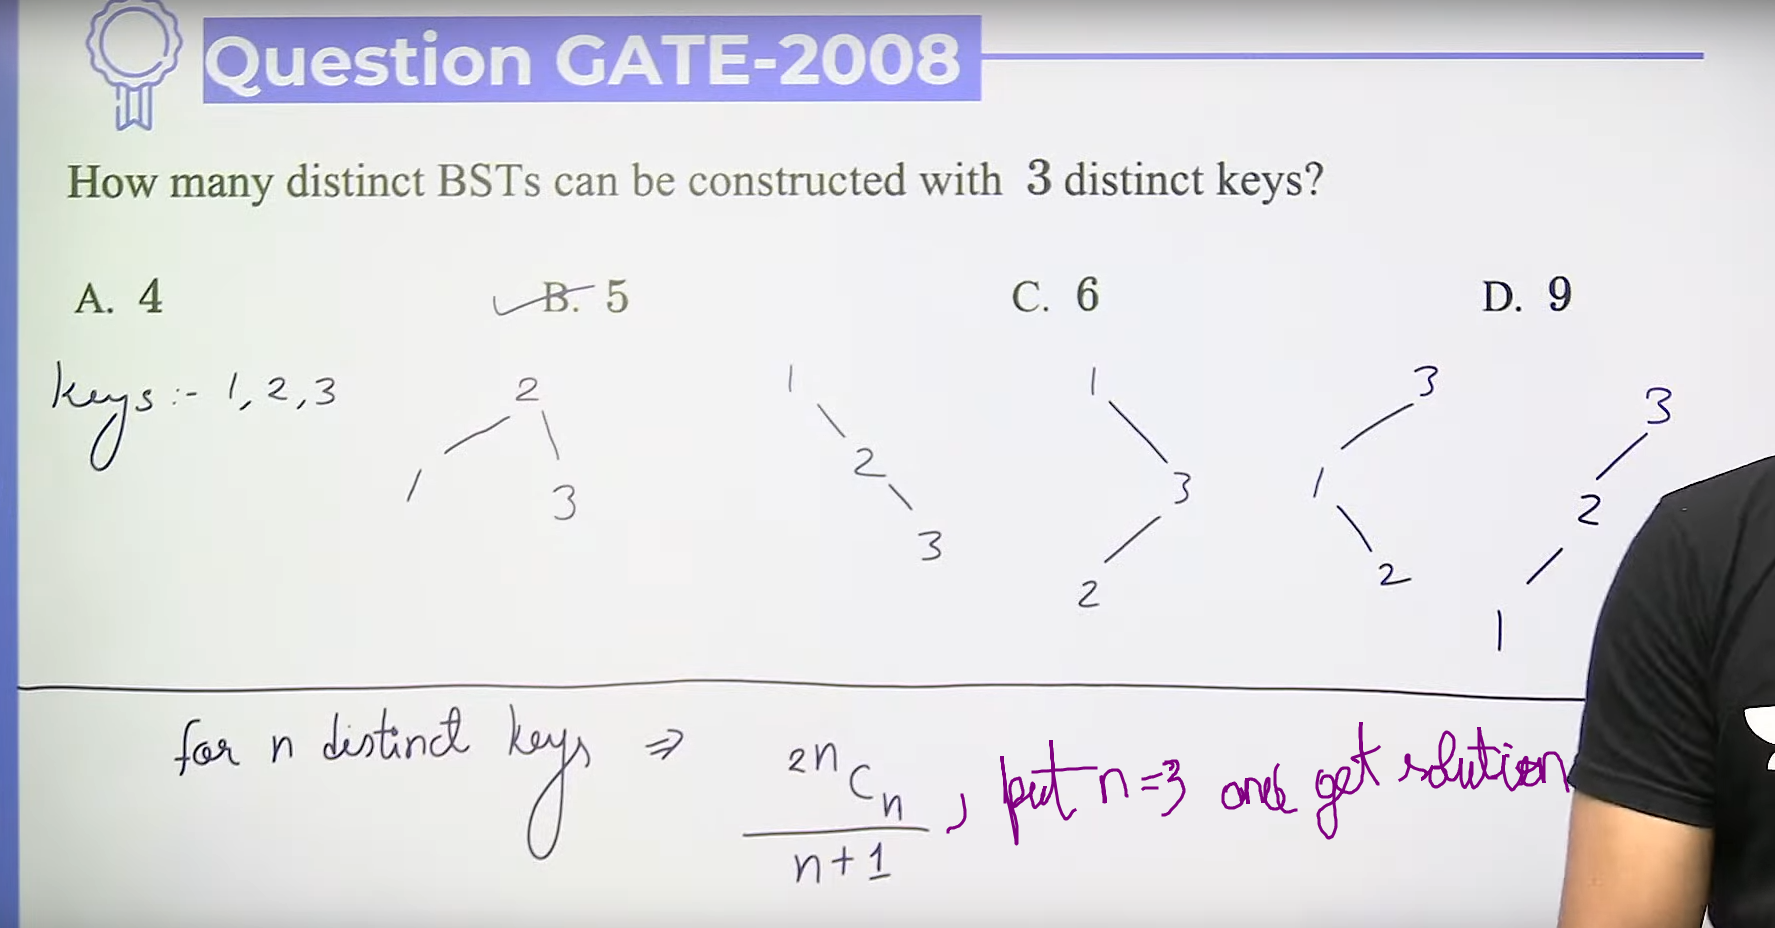 Question GATE-2008
How many distinct BSTs can be constructed with 3 distinct keys?
A. 4 B. 5 C. 6 D. 9
keys :- 1, 2, 3
2
1 3
1
2
3
1
3
2
3
1
2
3
2
1
for n distinct keys ⇒ 2nCn / n+1 , put n=3 and get solution